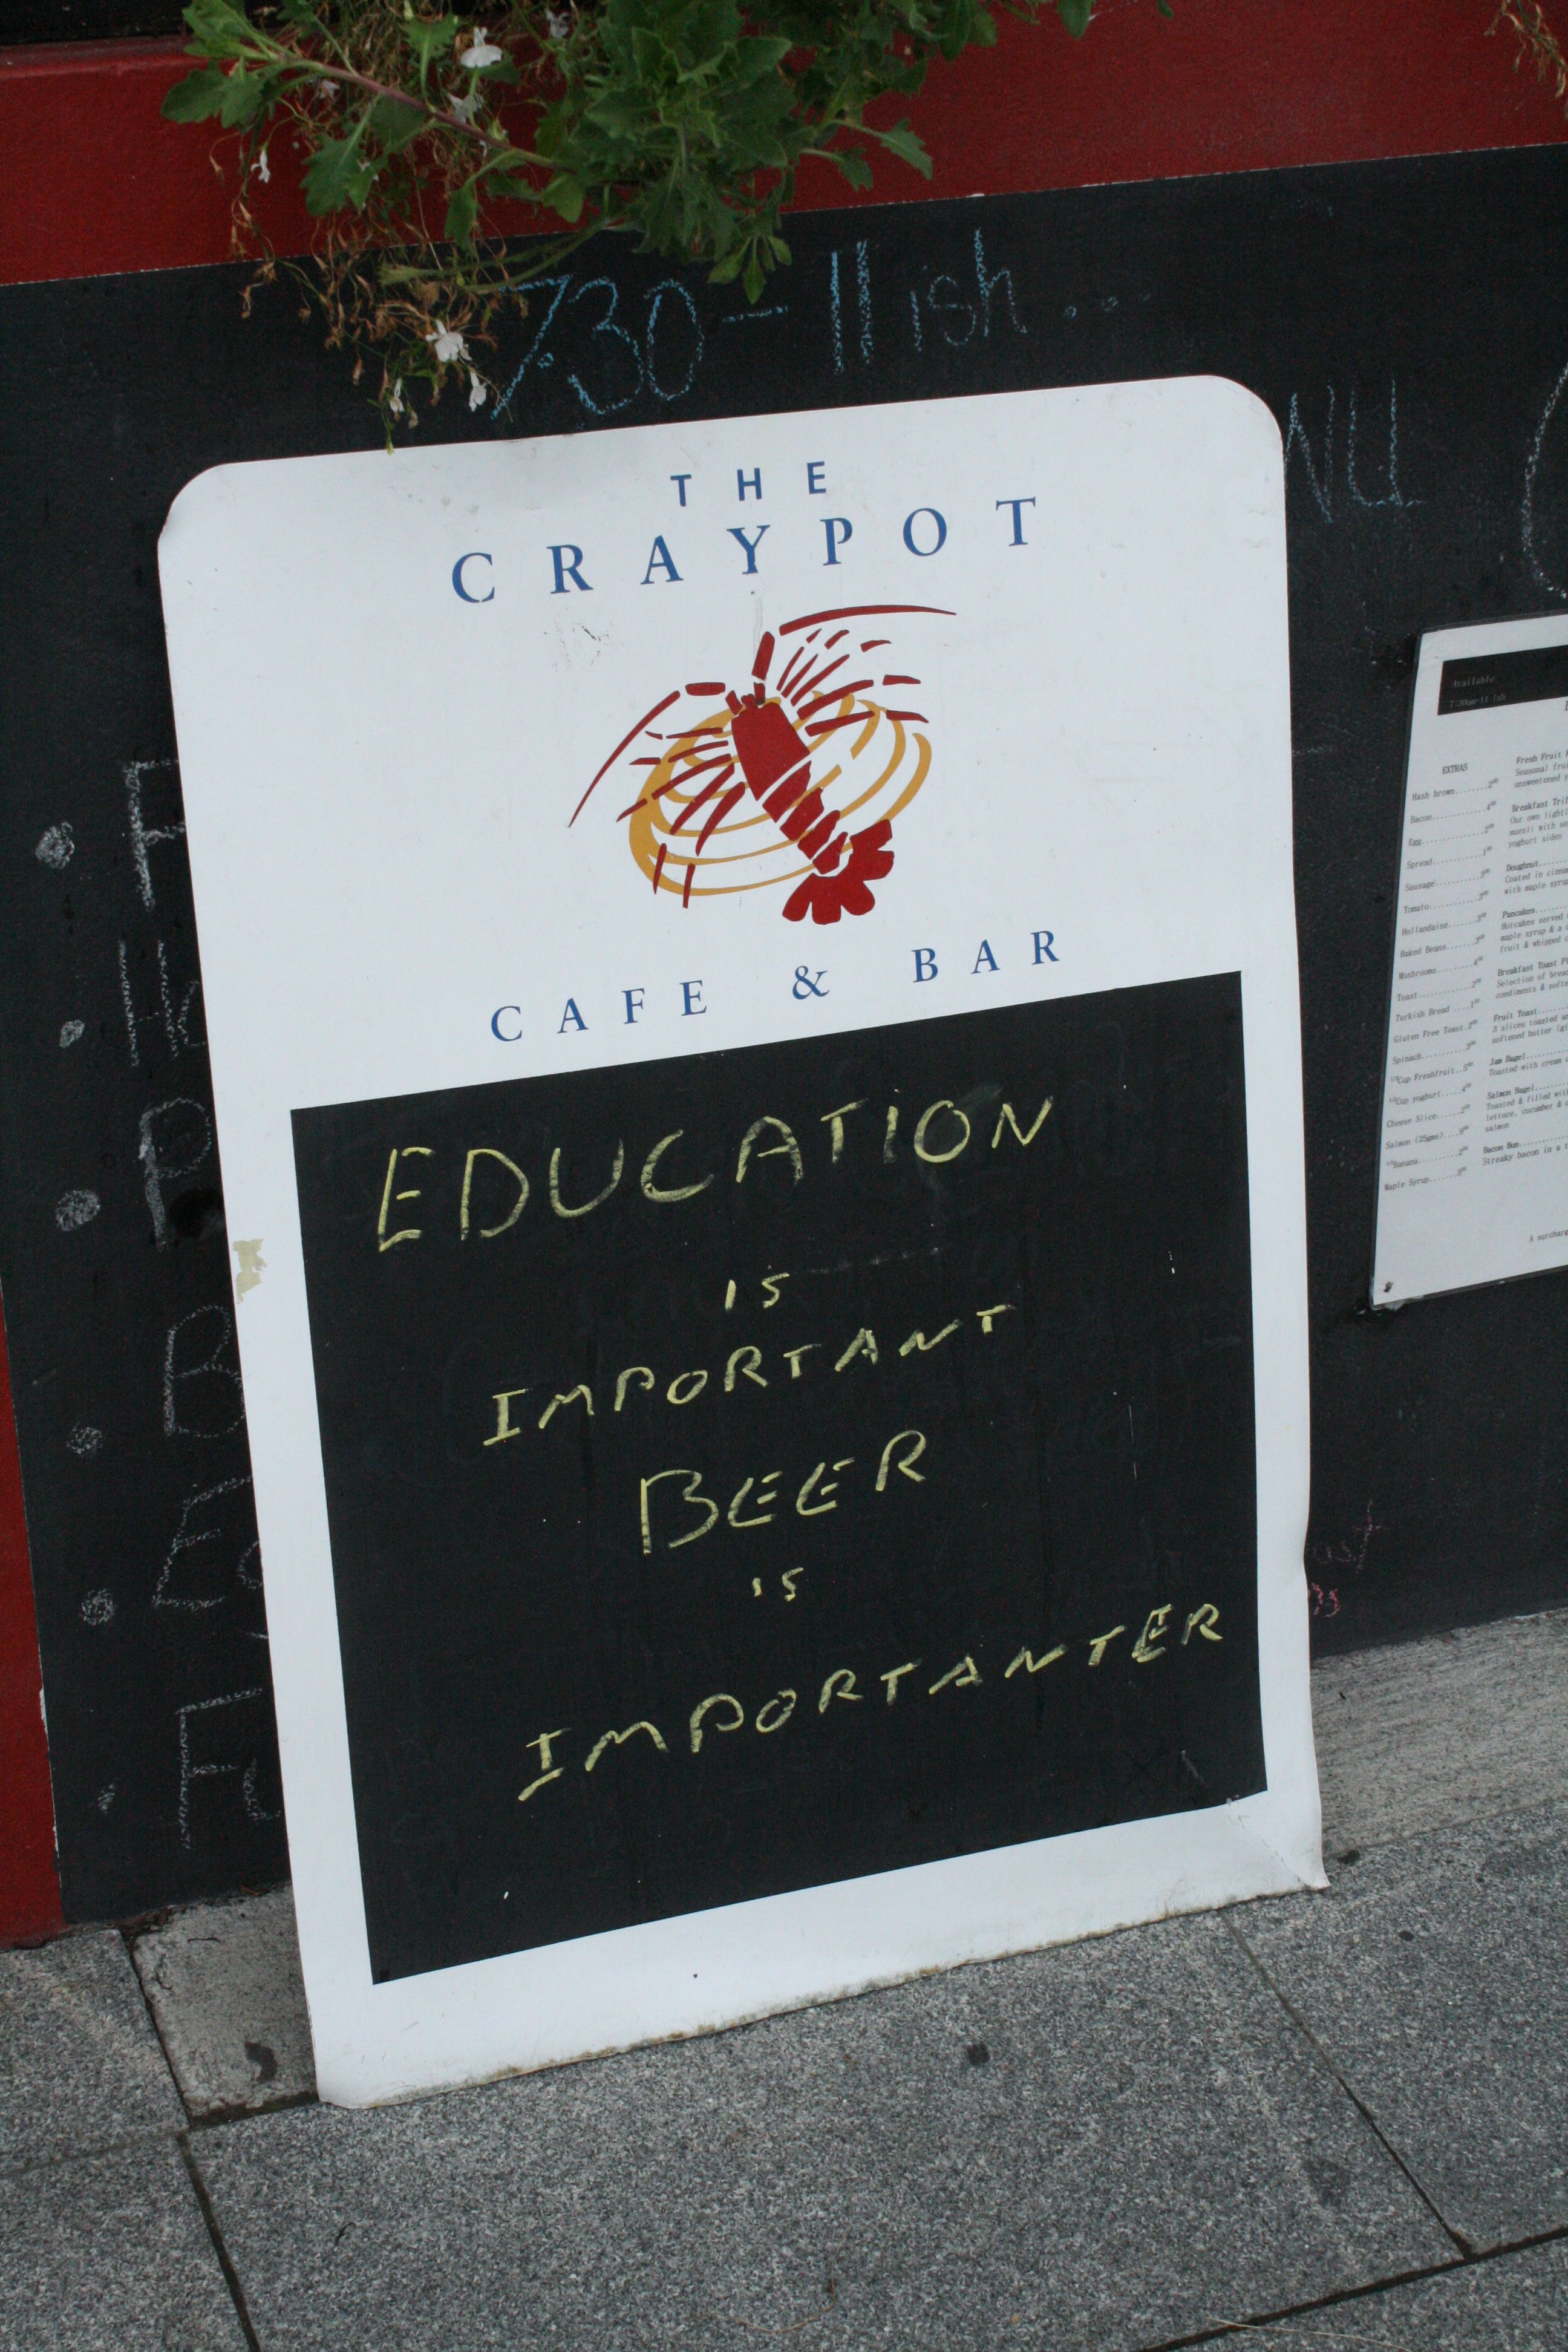 730 - 11ish...
NU
THE
CRAYPOT
CAFE & BAR
EDUCATION
IS
IMPORTANT
BEER
IS
IMPORTANTER
Available:
7:30am-11 ish
EXTRAS
Hash brown
Bacon
Egg
Spread
Sausage
Tomato
Hollandaise
Baked Beans
Mushrooms
Toast
Turkish Bread
Gluten Free Toast
Spinach
Cup Freshfruit
Cup yoghurt
Cheese Slice
Salmon (25gms)
Banana
Maple Syrup
Fresh Fruit
Seasonal
unsweetened
Breakfast
Our own
muesli with
yoghurt sides
Doughnut
Coated in
with maple
Pancakes
Hotcakes served
maple syrup & a
fruit & whipped
Breakfast Toast
Selection of
condiments &
Fruit Toast
3 slices toasted
softened butter
Jam Bagel
Toasted with cream
Salmon Bagel
Toasted & filled
lettuce, cucumber &
salmon
Bacon Bun
Streaky bacon in a